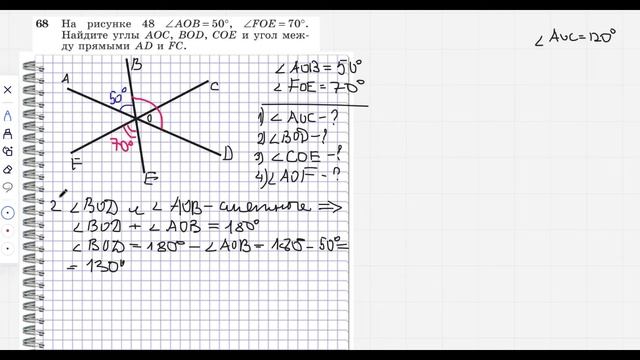 68 На рисунке 48 ∠AOB = 50°, ∠FOE = 70°.
Найдите углы AOC, BOD, COE и угол меж-
ду прямыми AD и FC.
∠AOC = 120°
B
A
50°
C
O
70°
F
E
D
∠AOB = 50°
∠FOE = 70°
1) ∠AOC - ?
2) ∠BOD - ?
3) ∠COE - ?
4) ∠AOF - ?
2 ∠BOD и ∠AOB - смежные ⇒
∠BOD + ∠AOB = 180°
∠BOD = 180° - ∠AOB = 180° - 50° =
= 130°